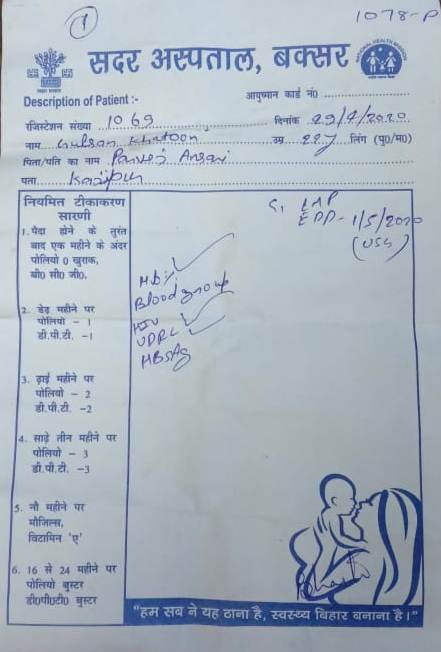 1
1078-P
सदर अस्पताल, बक्सर
NATIONAL HEALTH MISSION
Description of Patient :-
आयुष्मान कार्ड नं०
रजिस्टेशन संख्या 1069
दिनांक 29/4/2020
नाम Gulsan Khatoon
उम्र 22y लिंग (पु०/म०)
पिता/पति का नाम Parvej Ansari
पता Kazipur
नियमित टीकाकरण
सारणी
1. पैदा होने के तुरंत
बाद एक महीने के अंदर
पोलियो 0 खुराक.
बी० सी० जी०.
2. डेढ़ महीने पर
पोलियो - 1
डी.पी.टी. -1
3. ढ़ाई महीने पर
पोलियो - 2
डी.पी.टी. -2
4. साढ़े तीन महीने पर
पोलियो - 3
डी.पी.टी. -3
5. नौ महीने पर
मीजिल्स,
विटामिन 'ए'
6. 16 से 24 महीने पर
पोलियो बुस्टर
डी०पी०टी० बुस्टर
LMP
EDD - 1/5/2020
(USG)
Hb%
Blood group
HIV
VDRL
HBSAg
"हम सब ने यह ठाना है, स्वस्थ्य बिहार बनाना है।"